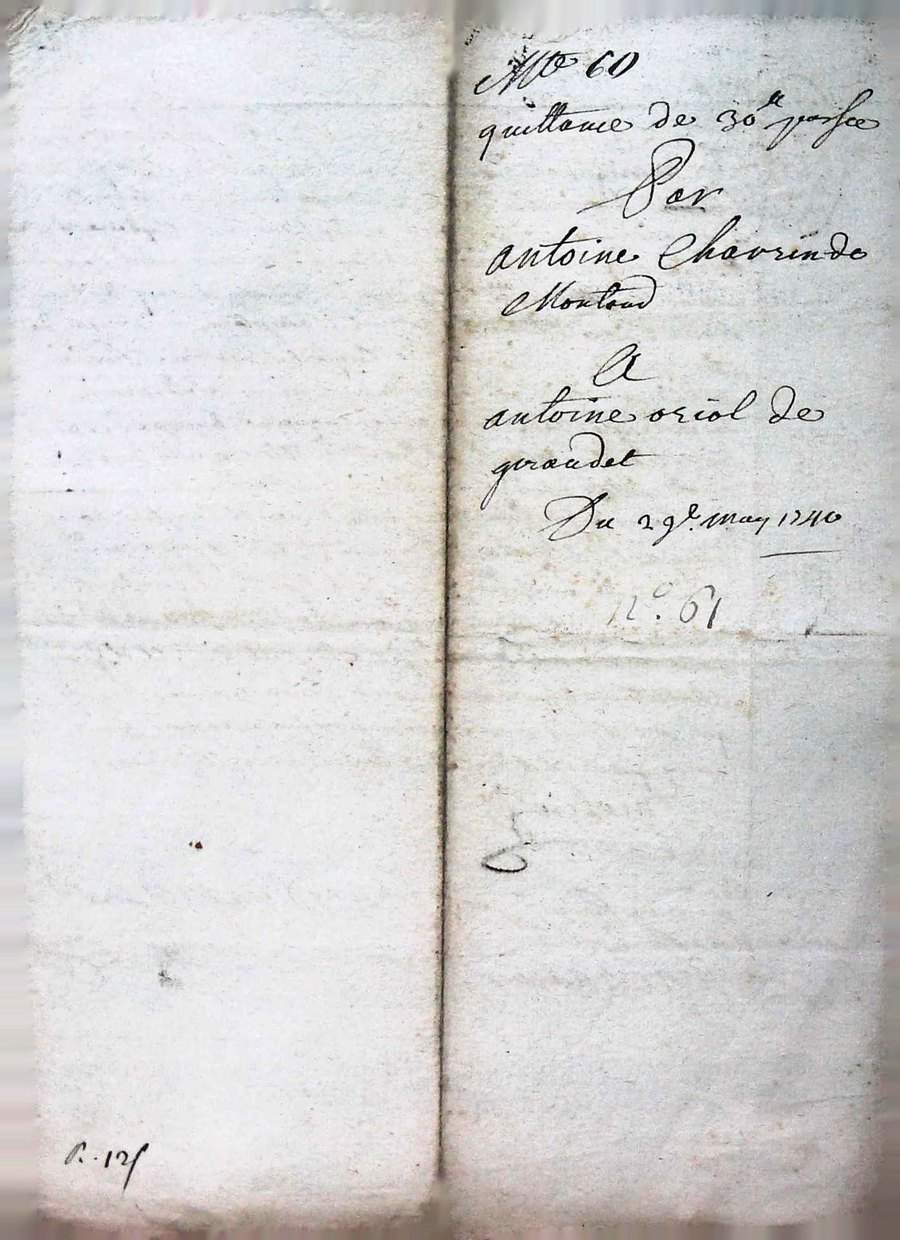 Cotte 60
quittance de 30ᵗᵗ passée
Par
antoine Chavrin de
Montaud
A
antoine oriol de
giraudet
Du 29e. may 1740
n°. 61
R. 12ſ